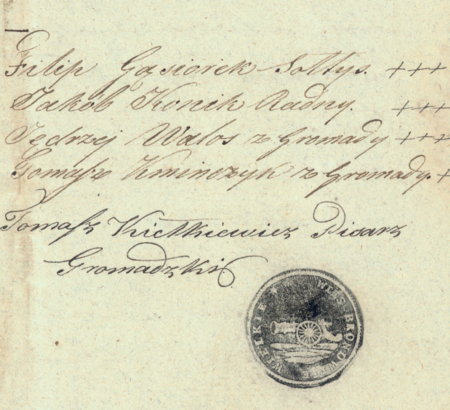 Filip Gąsiorek Sołtys. +++
Jakób Konik Radny. +++
Jędrzej Walos z Gromady +++
Tomasz Kmieńczyk z Gromady. +
Tomasz Kiełkiewicz Pisarz
Gromadzki
WIEŚ